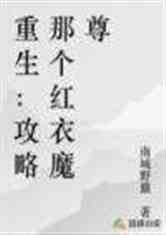 重生：攻略
那个红衣魔
尊
南城野 著